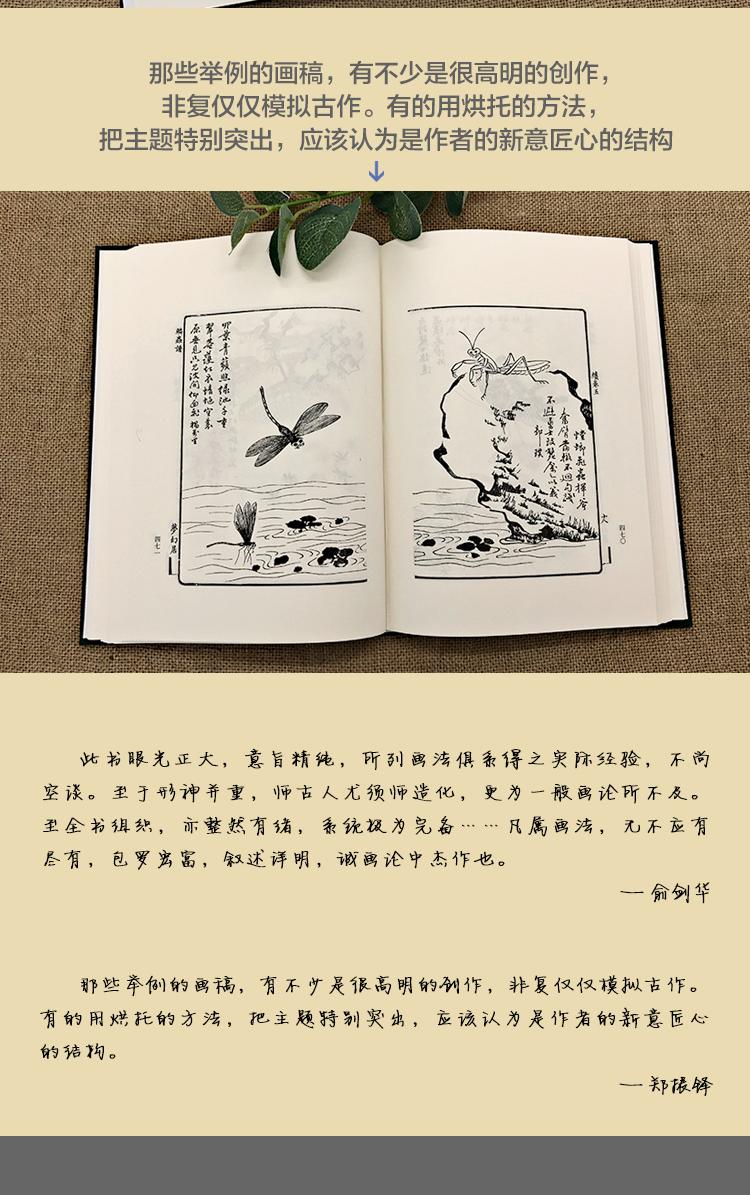 那些举例的画稿，有不少是很高明的创作，
非复仅仅模拟古作。有的用烘托的方法，
把主题特别突出，应该认为是作者的新意匠心的结构
夢幻居
四七一
四七〇
此书眼光正大，意旨精纯，所列画法俱系得之实际经验，不尚
空谈。至于形神并重，师古人尤须师造化，更为一般画论所不及。
至全书组织，亦整然有绪，系统极为完备……凡属画法，无不应有
尽有，包罗宏富，叙述详明，诚画论中杰作也。
——俞剑华
那些举例的画稿，有不少是很高明的创作，非复仅仅模拟古作。
有的用烘托的方法，把主题特别突出，应该认为是作者的新意匠心
的结构。
——郑振铎